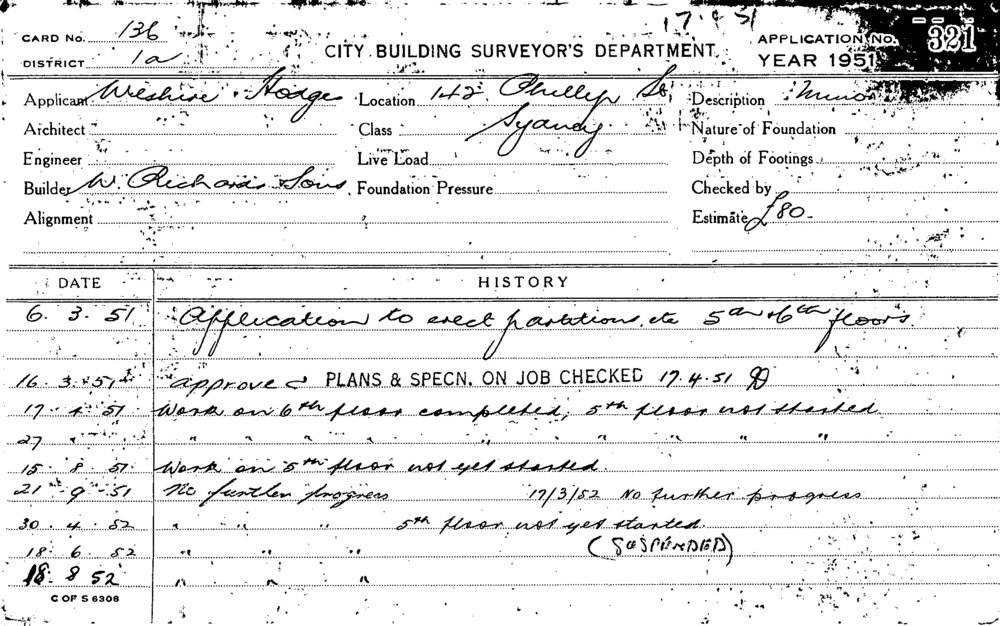 17.4.51
CARD No. 136
APPLICATION No. 321
DISTRICT 1a
CITY BUILDING SURVEYOR'S DEPARTMENT.
YEAR 1951
Applicant Hodges Location 142 Phillip St Description Minor
Architect Class Sydney Nature of Foundation
Engineer Live Load Depth of Footings
Builder W. Richards Sons Foundation Pressure Checked by
Alignment Estimate £80-
DATE HISTORY
6. 3. 51 Application to erect partitions, etc 5th & 6th floors
16. 3. 51 approved PLANS & SPECN. ON JOB CHECKED 17.4.51
17 4 51 Work on 6th floor completed, 5th floor not started
27 " " " " " " " " " " "
15. 8. 51 Work on 5th floor not yet started.
21 - 9 - 51 No further progress 17/3/52 No further progress
30 . 4 . 52 " " " 5th floor not yet started.
18. 6. 52 " " " (SUSPENDED)
18. 8 52 " " "
C OF S 6308